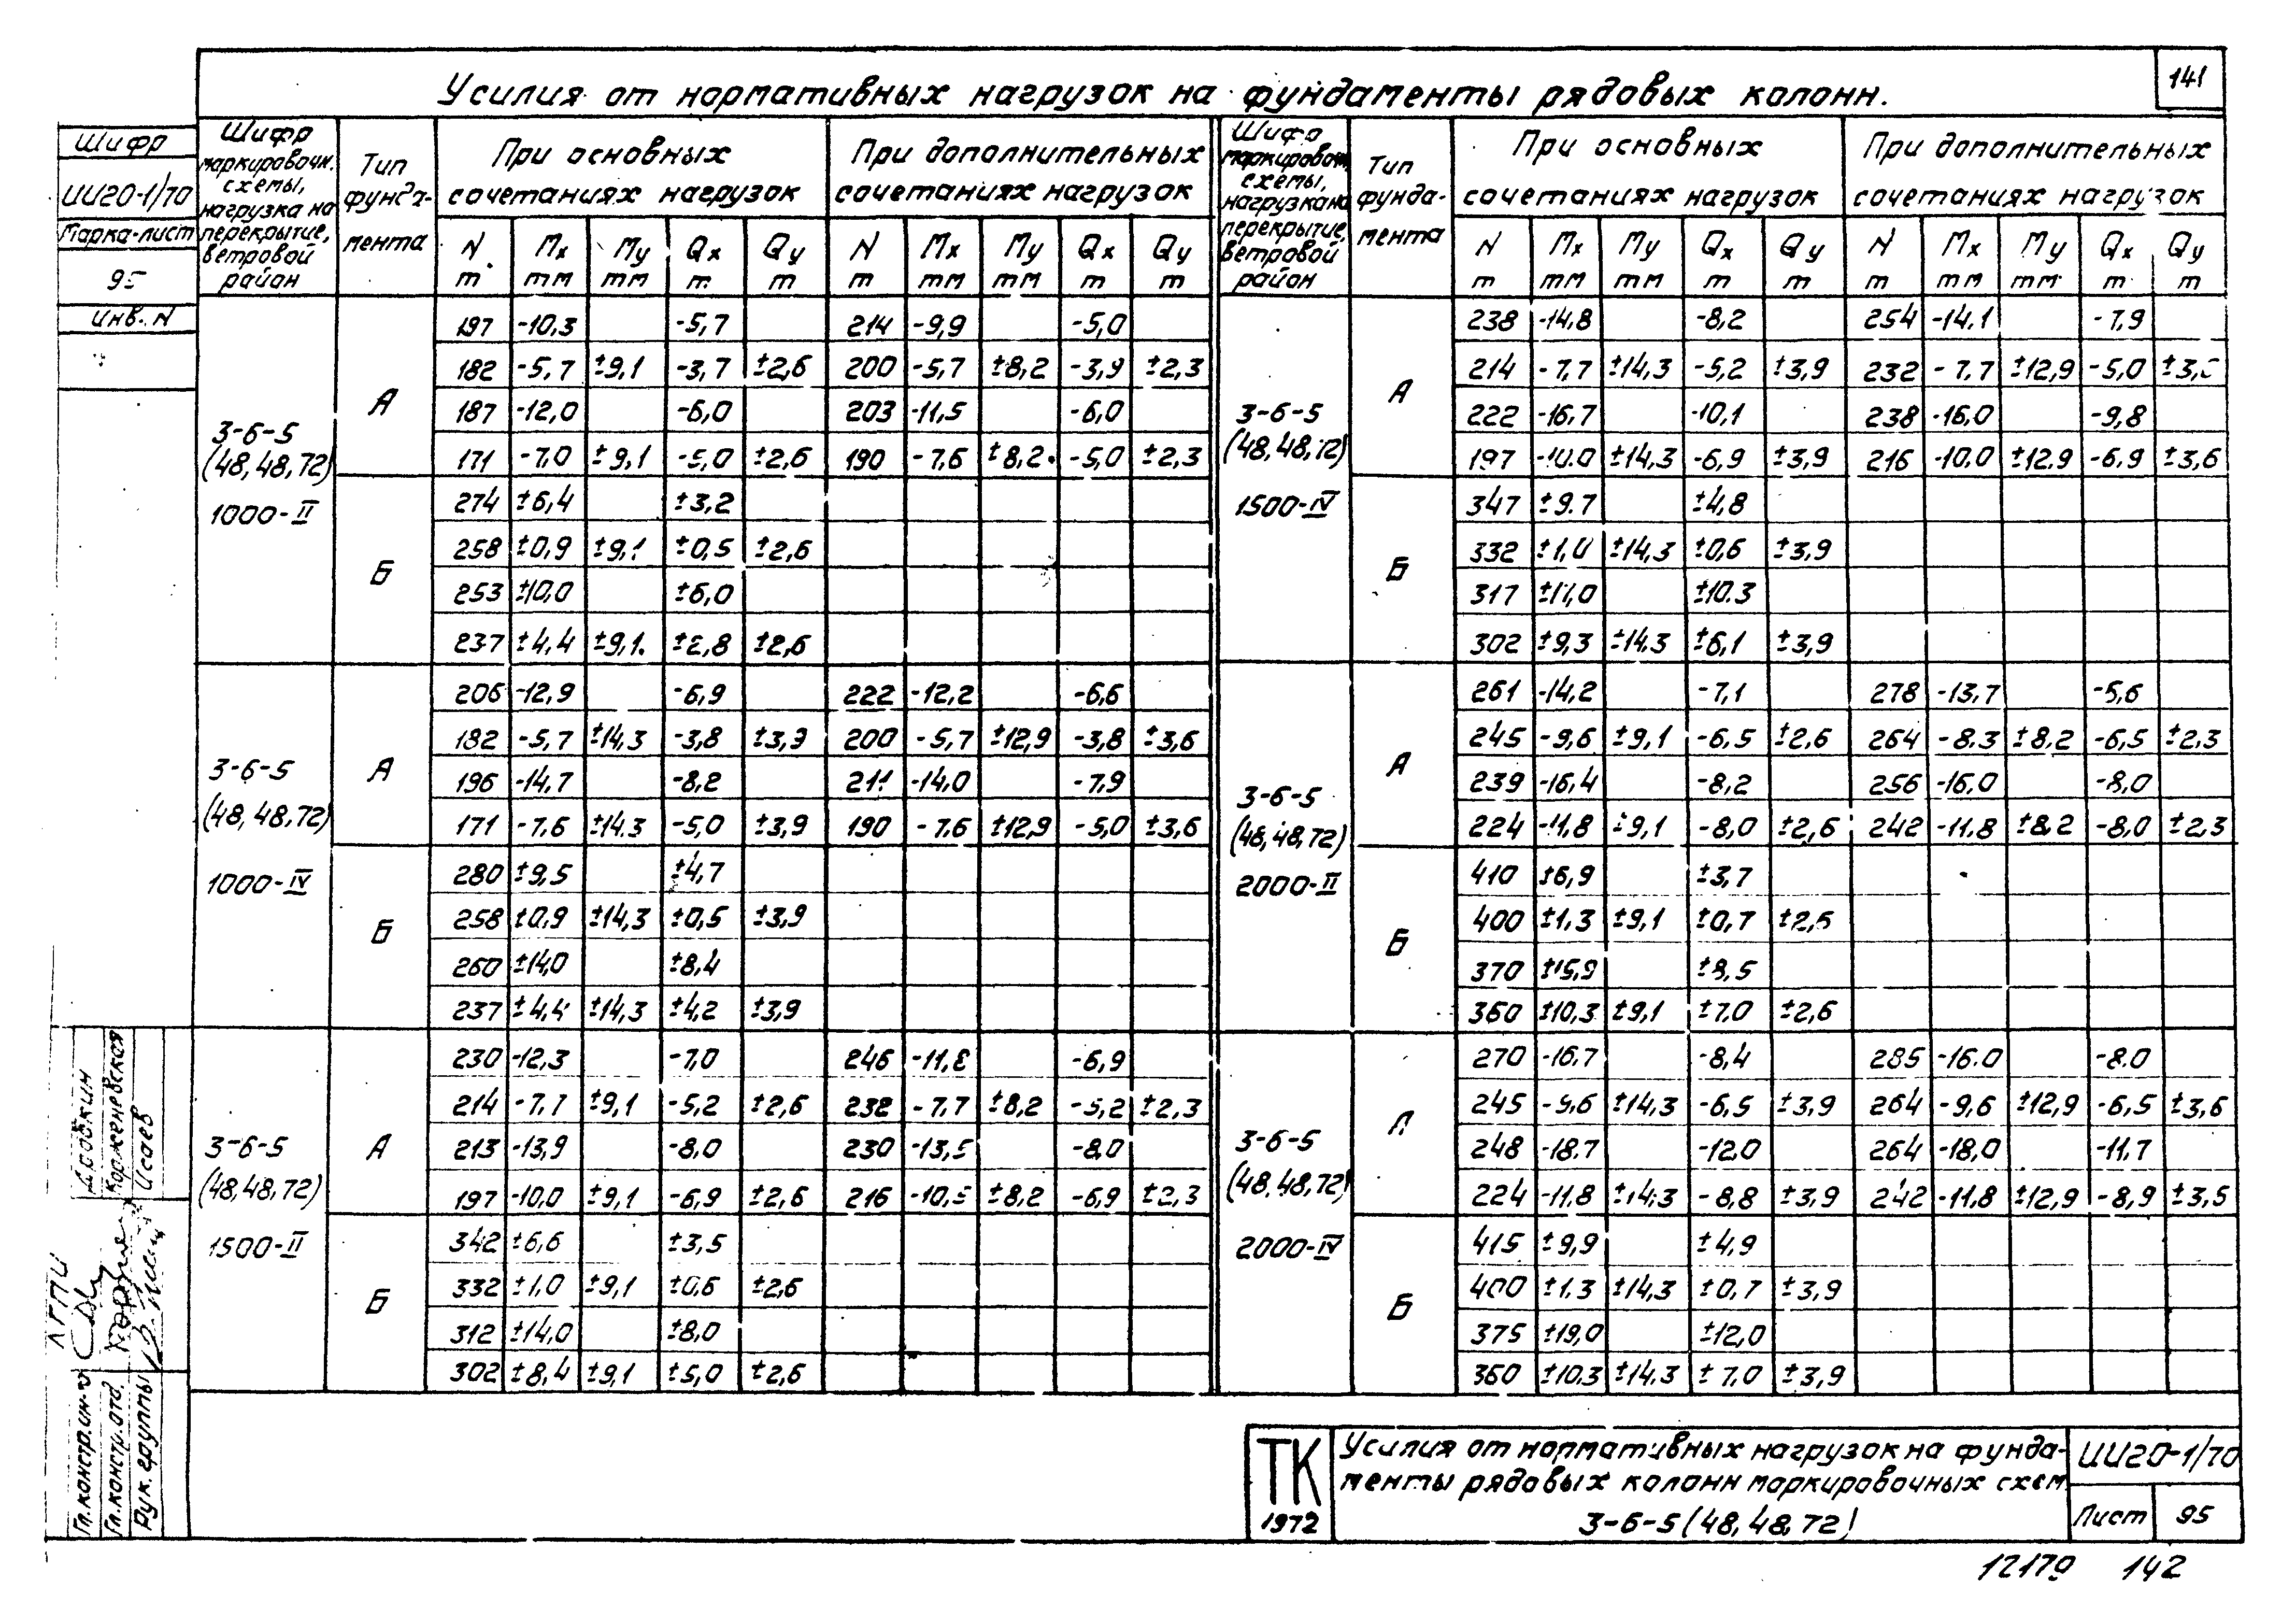 141
Усилия от нормативных нагрузок на фундаменты рядовых колонн.
Шифр
ИИ20-1/70
Марка-лист
95
Инв. N
Шифр маркировочн. схемы, нагрузка на перекрытие, ветровой район | Тип фундамента | При основных сочетаниях нагрузок | При дополнительных сочетаниях нагрузок
N т | Mx тм | My тм | Qx т | Qy т | N т | Mx тм | My тм | Qx т | Qy т
3-6-5 (48,48,72) 1000-II
А
197 -10,3 -5,7 214 -9,9 -5,0
182 -5,7 ±9,1 -3,7 ±2,6 200 -5,7 ±8,2 -3,9 ±2,3
187 -12,0 -6,0 203 -11,5 -6,0
171 -7,0 ±9,1 -5,0 ±2,6 190 -7,6 ±8,2 -5,0 ±2,3
Б
274 ±6,4 ±3,2
258 ±0,9 ±9,1 ±0,5 ±2,6
253 ±10,0 ±6,0
237 ±4,4 ±9,1 ±2,8 ±2,6
3-6-5 (48,48,72) 1000-IV
А
206 -12,9 -6,9 222 -12,2 -6,6
182 -5,7 ±14,3 -3,8 ±3,9 200 -5,7 ±12,9 -3,8 ±3,6
196 -14,7 -8,2 211 -14,0 -7,9
171 -7,6 ±14,3 -5,0 ±3,9 190 -7,6 ±12,9 -5,0 ±3,6
Б
280 ±9,5 ±4,7
258 ±0,9 ±14,3 ±0,5 ±3,9
260 ±14,0 ±8,4
237 ±4,4 ±14,3 ±4,2 ±3,9
3-6-5 (48,48,72) 1500-II
А
230 -12,3 -7,0 246 -11,8 -6,9
214 -7,7 ±9,1 -5,2 ±2,6 232 -7,7 ±8,2 -5,2 ±2,3
213 -13,9 -8,0 230 -13,5 -8,0
197 -10,0 ±9,1 -6,9 ±2,6 216 ±8,2 -6,9 ±2,3
Б
342 ±6,6 ±3,5
332 ±1,0 ±9,1 ±0,6 ±2,6
312 ±14,0 ±8,0
302 ±8,4 ±9,1 ±5,0 ±2,6
Шифр маркировочн. схемы, нагрузка на перекрытие, ветровой район | Тип фундамента | При основных сочетаниях нагрузок | При дополнительных сочетаниях нагрузок
N т | Mx тм | My тм | Qx т | Qy т | N т | Mx тм | My тм | Qx т | Qy т
3-6-5 (48,48,72) 1500-IV
А
238 -14,8 -8,2 254 -14,1 -7,9
214 -7,7 ±14,3 -5,2 ±3,9 232 -7,7 ±12,9 -5,0
222 -16,7 -10,1 238 -16,0 -9,8
197 -10.0 ±14,3 -6,9 ±3,9 216 -10,0 ±12,9 -6,9 ±3,6
Б
347 ±9.7 ±4,8
332 ±1,0 ±14,3 ±0,6 ±3,9
317 ±17,0 ±10.3
302 ±9,3 ±14,3 ±6,1 ±3,9
3-6-5 (48,48,72) 2000-II
А
261 -14,2 -7,1 278 -13,7 -5,6
245 -9,6 ±9,1 -6,5 ±2,6 264 -8,3 ±8,2 -6,5 ±2,3
239 -16,4 -8,2 256 -16,0 -8,0
224 -11,8 ±9,1 -8,0 ±2,6 242 -11,8 ±8,2 -8,0 ±2,3
Б
410 ±6,9 ±3,7
400 ±1,3 ±9,1 ±0,7 ±2,6
370 ±15,9 ±8,5
360 ±10,3 ±9,1 ±7,0 ±2,6
3-6-5 (48,48,72) 2000-IV
А
270 -16,7 -8,4 285 -16,0 -8,0
245 -9,6 ±14,3 -6,5 ±3,9 264 -9,6 ±12,9 -6,5 ±3,6
248 -18,7 -12,0 264 -18,0 -11,7
224 -11,8 ±14,3 -8,8 ±3,9 242 -11,8 ±12,9 -8,9 ±3,5
Б
415 ±9,9 ±4,9
400 ±1,3 ±14,3 ±0,7 ±3,9
375 ±19,0 ±12,0
360 ±10,3 ±14,3 ±7,0 ±3,9
Корженевская
Исаев
Гл. констр. отд.
Рук. группы
ТК
1972
Усилия от нормативных нагрузок на фунда-
менты рядовых колонн маркировочных схем
3-6-5 (48,48,72)
ИИ20-1/70
Лист 95
12179 142